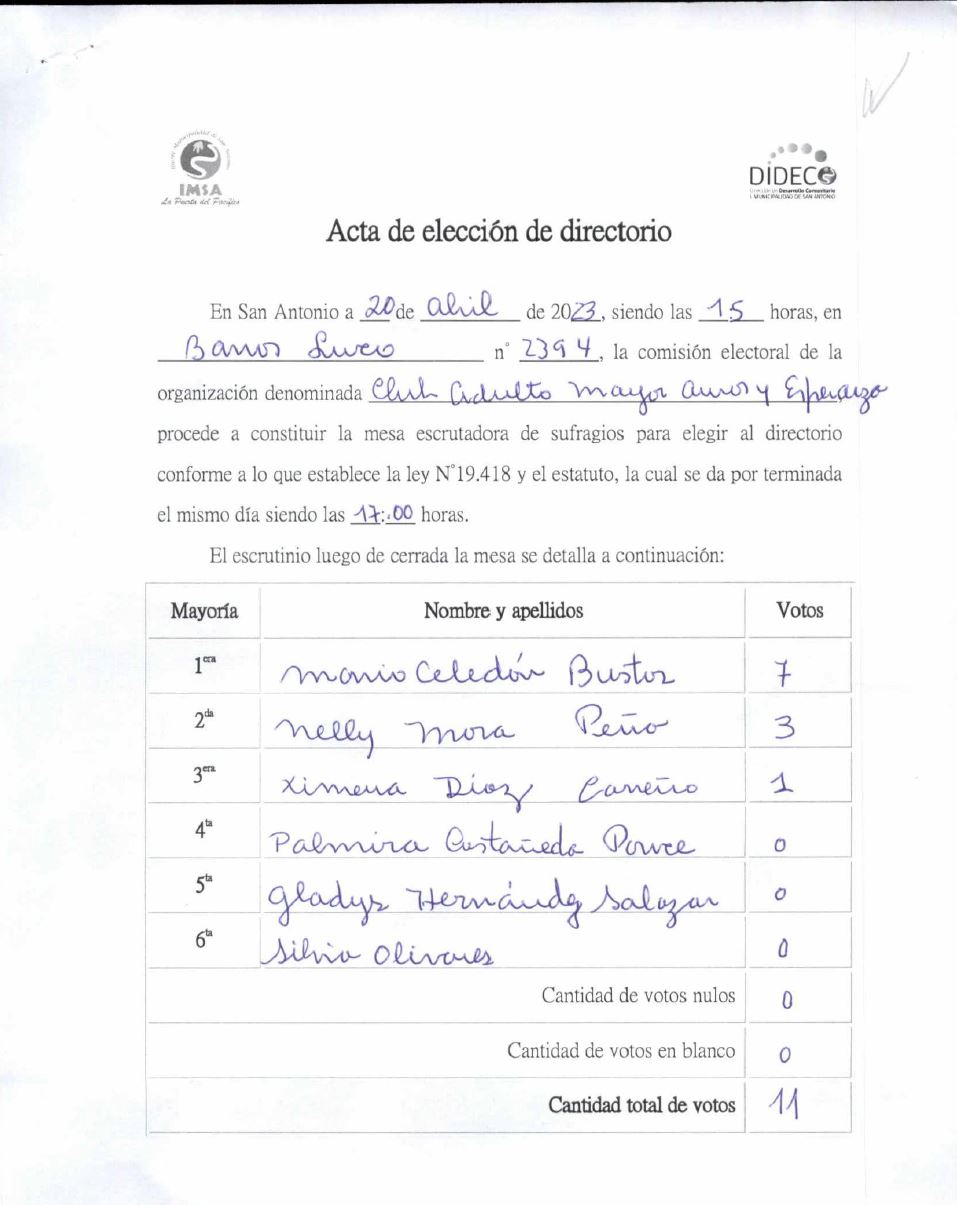 Ilustre Municipalidad de San Antonio
IMSA
La Puerta del Pacífico
DIDECO
Dirección de Desarrollo Comunitario
I. MUNICIPALIDAD DE SAN ANTONIO
Acta de elección de directorio
En San Antonio a 20 de abril de 2023, siendo las 15 horas, en
Barros Luco n° 2394, la comisión electoral de la
organización denominada Club Adulto mayor amor y Esperanza
procede a constituir la mesa escrutadora de sufragios para elegir al directorio
conforme a lo que establece la ley N°19.418 y el estatuto, la cual se da por terminada
el mismo día siendo las 17:00 horas.
El escrutinio luego de cerrada la mesa se detalla a continuación:
Mayoría Nombre y apellidos Votos
1era Mario Celedón Bustos 7
2da Nelly Mora Peño 3
3era Ximena Díaz Carreño 1
4ta Palmira Castañeda Ponce 0
5ta Gladys Hernández Salazar 0
6ta Silvia Olivares 0
Cantidad de votos nulos 0
Cantidad de votos en blanco 0
Cantidad total de votos 11